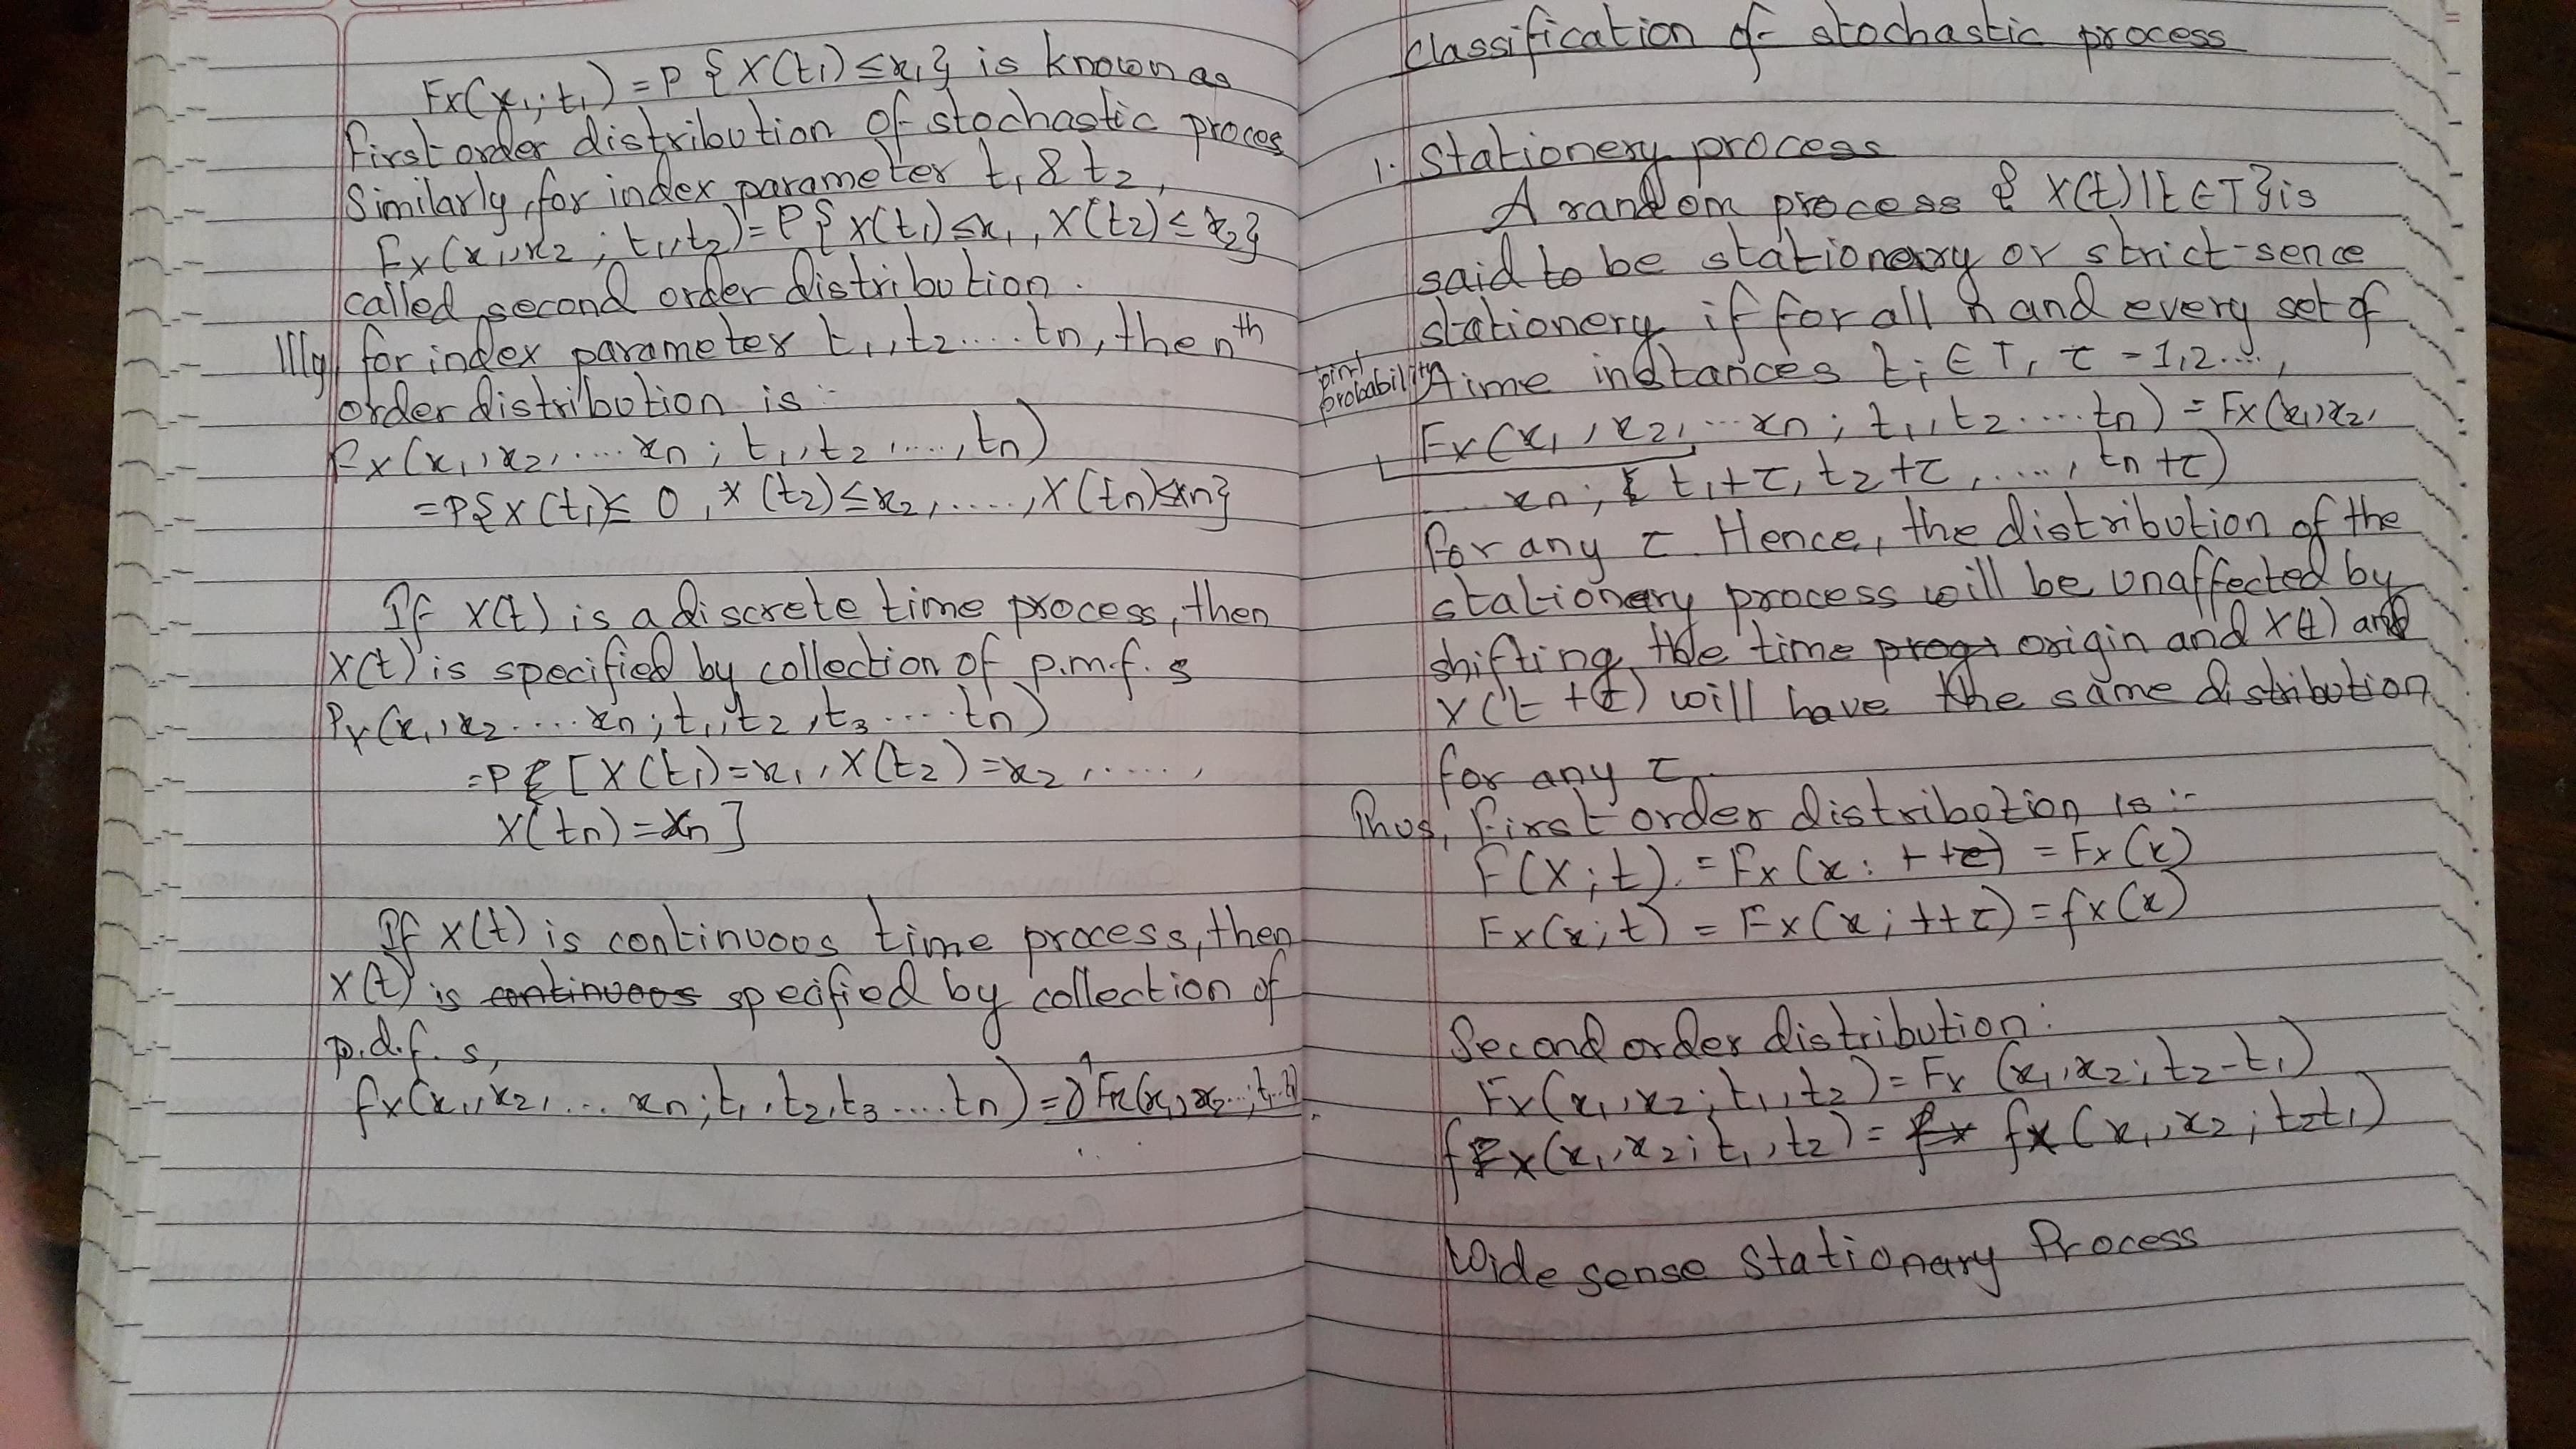 Fx(x₁; t₁) = P {X(t₁) ≤ x₁} is known as
first order distribution of stochastic proces
Similarly, for index parameter t₁ & t₂,
Fx(x₁, x₂ ; t₁, t₂) = P{X(t₁) ≤ x₁, X(t₂) ≤ x₂}
called second order distribution.
Illy for index parameter t₁, t₂ .... tn, the nth
order distribution is :-
Fx(x₁, x₂, .... xn ; t₁, t₂ ...., tn)
= P{X(t₁) ≤ 0, X(t₂) ≤ x₂, ....., X(tn) ≤ xn}
If X(t) is a discrete time process, then
X(t) is specified by collection of p.m.f.s
Px(x₁, x₂ .... xn ; t₁, t₂, t₃ .... tn)
= P [X(t₁) = x₁, X(t₂) = x₂ ......,
X(tn) = xn]
If X(t) is continuous time process, then
X(t) is continuous specified by collection of
p.d.f.s,
fx(x₁, x₂, ... xn ; t₁, t₂, t₃ .... tn) = ∂ Fx(x₁, x₂...; t₁..
Classification of stochastic process
1. Stationery process
A random process { X(t) | t ∈ T } is
said to be stationery or strict-sence
stationery if for all n and every set of
time instances ti ∈ T, τ = 1,2....,
joint
probability
Fx(x₁, x₂, ... xn ; t₁, t₂ .... tn) = Fx(x₁, x₂,
.... xn ; t₁+τ, t₂+τ, ...., tn+τ)
for any τ. Hence, the distribution of the
stationery process will be unaffected by
shifting the time origin and X(t) and
X(t+τ) will have the same distribution
for any τ.
Thus, first order distribution is :-
F(X; t). = Fx(x : t+τ) = Fx(x)
Fx(x; t) = Fx(x ; t+τ) = fx(x)
Second order distribution :
Fx(x₁, x₂ ; t₁, t₂) = Fx (x₁, x₂ ; t₂-t₁)
fx(x₁, x₂ ; t₁, t₂) = fx (x₁, x₂ ; t₂-t₁)
Wide sense Stationary Process